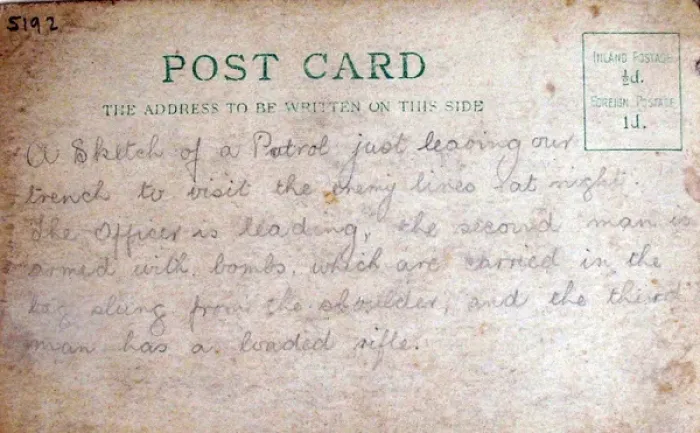 5192
POST CARD
THE ADDRESS TO BE WRITTEN ON THIS SIDE
INLAND POSTAGE
½d.
FOREIGN POSTAGE
1d.
A Sketch of a Patrol just leaving our
trench to visit the enemy lines at night.
The Officer is leading, the second man is
armed with bombs, which are carried in the
bag slung from the shoulder, and the third
man has a loaded rifle.